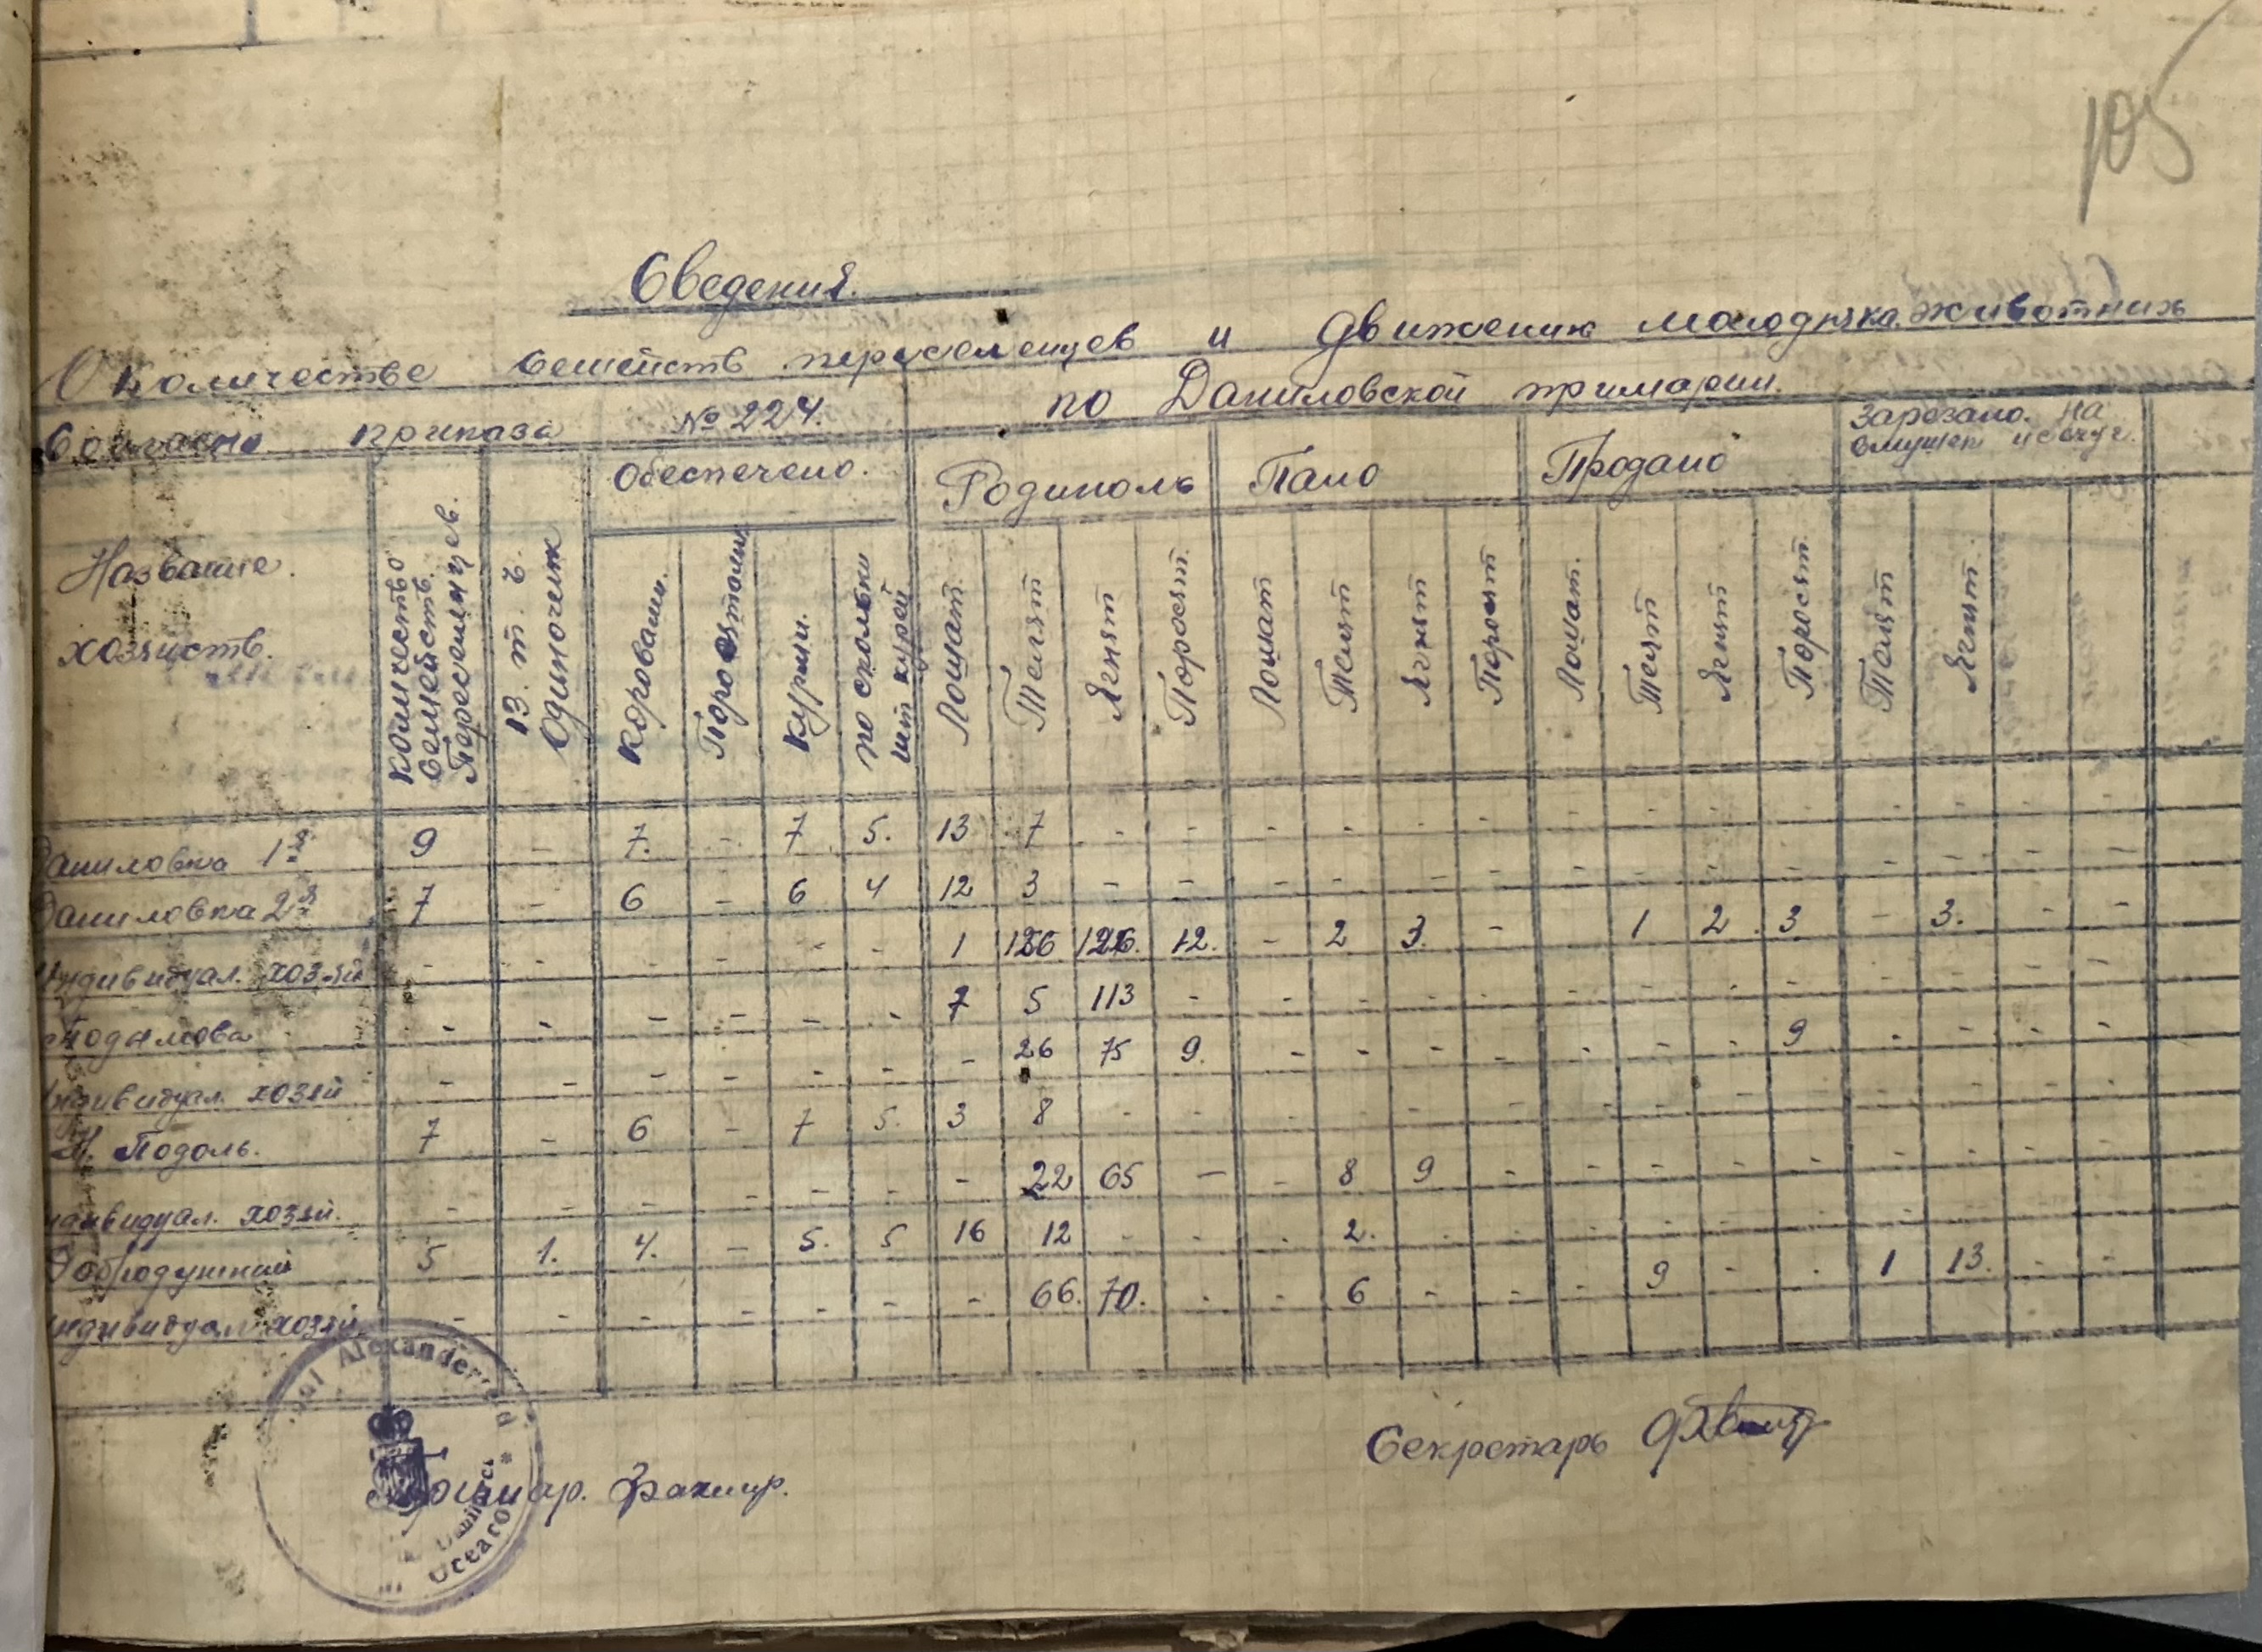 105
Сведения.
О количестве семейств переселенцев и движению молодняка животних
по Даниловской примарии.
Согласно приказа № 224.
Название хозяиств.
Количество Семейств. Переселенцев.
13. т. ч. Одиночек
Обеспечено.
Коровами.
Поросятами
Курми.
по сколько шт. курей.
Родилось
Лошат.
Телят
Ягнят
Поросят.
Пало
Лошат
Телят
Ягнят
Поросят
Продано
Лошат.
Телят
Ягнят
Поросят
Зарезано. на
Телят
Ягнят.
Даниловка 1я 9 - 7. - 7 5. 13 7 - - - - - - - - - - - - - -
Даниловка 2я 7 - 6 - 6 4 12 3 - - - - - - - - - - - - - -
Индивидуал. хозяй - - - - - - 1 126 126. 12. - 2 3. - 1 2. 3 - 3. - -
- - - - - - 7 5 113 - - - - - - - - - - - - -
Индивидуал. хозяй - - - - - - - 26 75 9. - - - - - - - 9 - - - -
Н. Подоль. 7 - 6 - 7 5. 3 8 - - - - - - - - - - - - - -
индивидуал. хозяй. - - - - - - - 22 65 - - 8 9 - - - - - - - - -
5 1. 4. - 5. 5 16 12 - - - 2. - - - - - - - - - -
индивидуал. хозяй. - - - - - - - 66. 70. - - 6 - - - 9 - - 1 13. - -
Alexander
Oceacov
Примар.
Секретарь